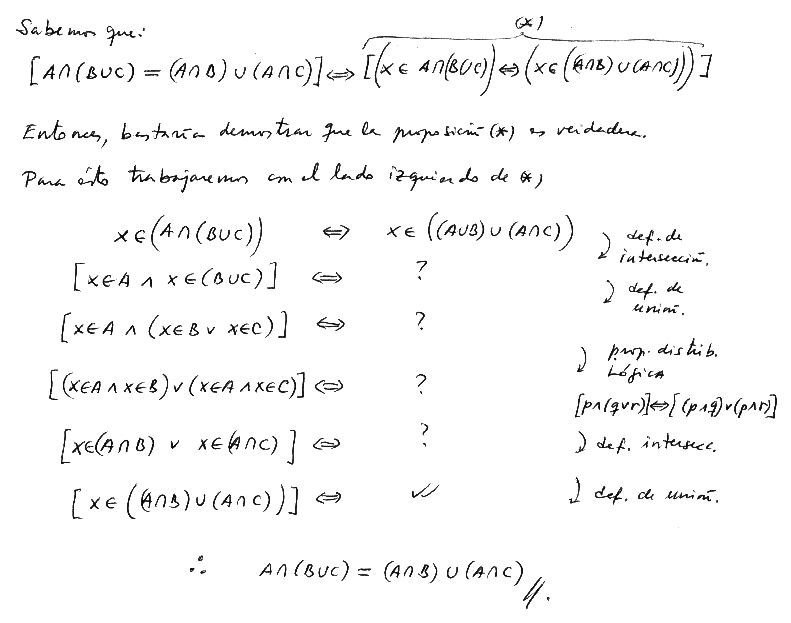 Sabemos que:
(*)
[A∩(B∪C) = (A∩B) ∪ (A∩C)] ⇔ [(x ∈ A∩(B∪C)) ⇔ (x ∈ ((A∩B) ∪ (A∩C)))]
Entonces, bastaría demostrar que la proposición (*) es verdadera.
Para ésto trabajaremos con el lado izquierdo de *)
x ∈ (A∩(B∪C)) ⇔ x ∈ ((A∪B) ∪ (A∩C))
def. de intersección.
[x∈A ∧ x∈(B∪C)] ⇔ ?
def. de unión.
[x∈A ∧ (x∈B ∨ x∈C)] ⇔ ?
prop. distrib. Lógica
[p∧(q∨r)] ⇔ [(p∧q)∨(p∧r)]
[(x∈A ∧ x∈B) ∨ (x∈A ∧ x∈C)] ⇔ ?
def. intersecc.
[x∈(A∩B) ∨ x∈(A∩C)] ⇔ ?
def. de unión.
[x ∈ ((A∩B) ∪ (A∩C))] ⇔ ✓
∴ A∩(B∪C) = (A∩B) ∪ (A∩C) //.